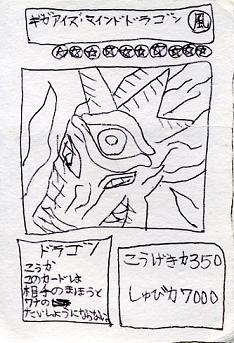 ギガアイズ・マインドドラゴン 風
ドラゴン
こうか
このカードは
相手のまほうと
ワナの
たいしようにならない
こうげき力350
しゅび力7000